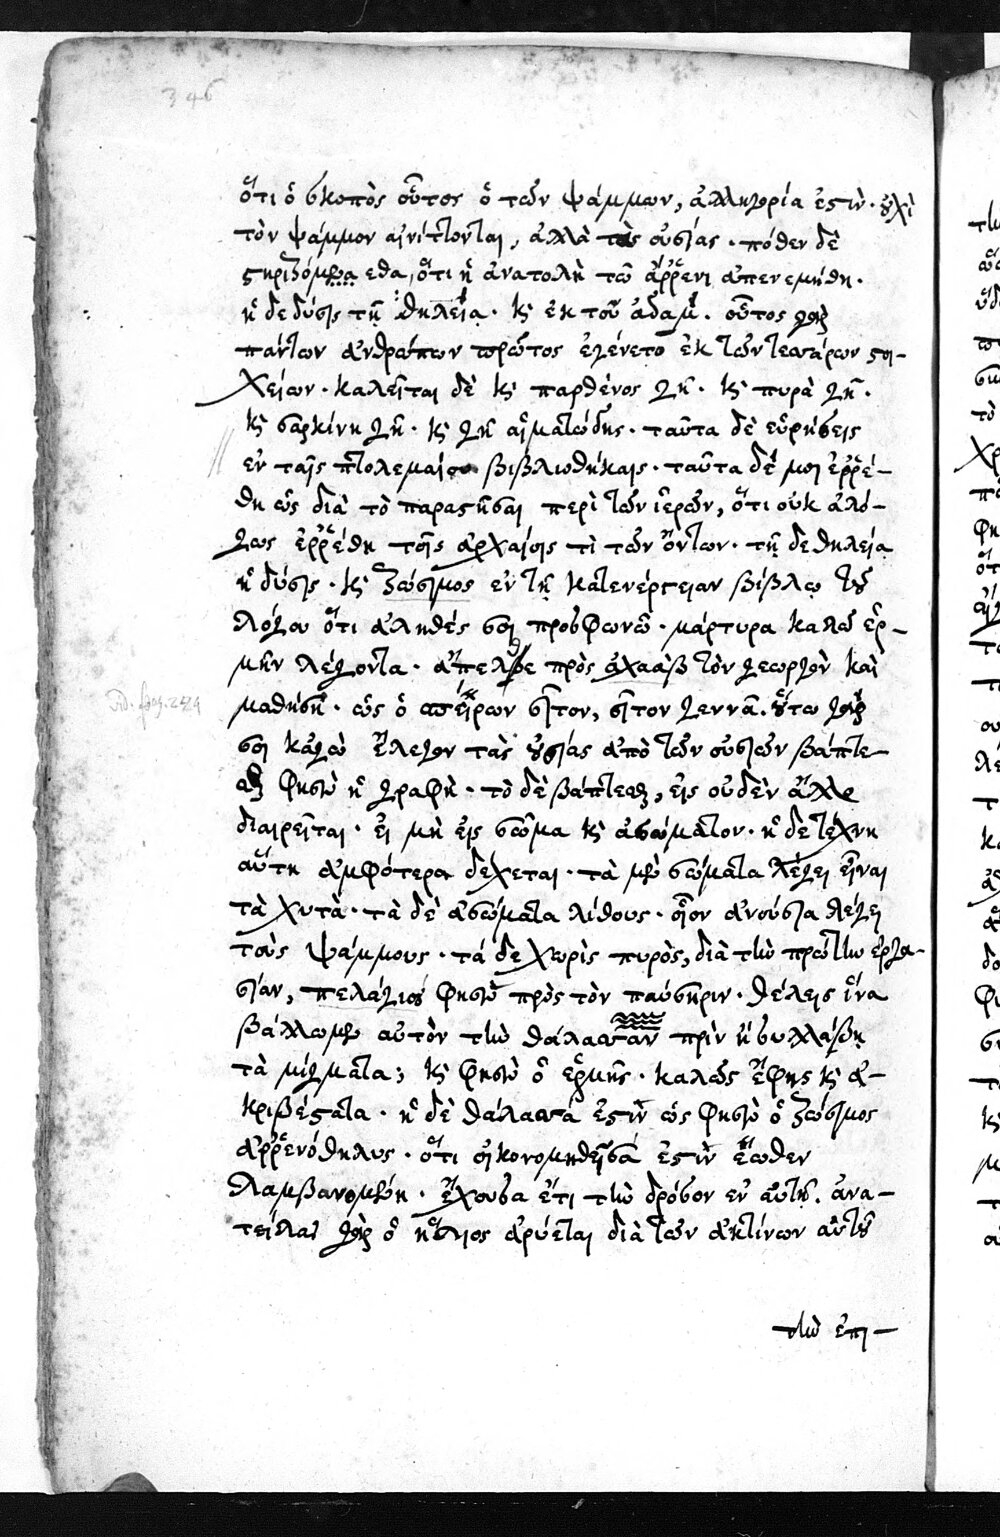 346
ὅτι ὁ σκοπὸς οὗτος ὁ τῶν ψάμμων, ἀλληγορία ἐστὶν. οὐχὶ
τὸν ψάμμον αἰνίττονται, ἀλλὰ τὰς οὐσίας. πόθεν δὲ
στηριζόμεθα, ὅτι ἡ ἀνατολὴ τῶ ἄῤῥενι ἀπενεμήθη.
ἡ δε δύσις τῇ θηλεία. κὶ ἐκ τοῦ ἀδαμ. οὗτος γὰρ
πάντων ἀνθρώπων πρῶτος ἐγένετο ἐκ τῶν τεσσάρων στοι-
χείων. καλεῖται δὲ κὶ παρθένος γῆ. κὶ πυρὰ γῆ.
κὶ σαρκίνη γῆ. κὶ γῆ αἱματώδης. ταῦτα δὲ εὑρήσεις
ἐν ταῖς πτολεμαίου βιβλιοθήκαις. ταῦτα δέ μοι ἐῤῥέ-
θη ὡς διὰ τὸ παραστῆσαι περὶ τῶν ἱερῶν, ὅτι οὐκ ἀλό-
γως ἐῤῥέθη τοῖς ἀρχαίοις τὶ τῶν ὄντων. τῇ δε θηλεία
ἡ δύσις. κὶ ζώσιμος ἐν τῇ κατενέργειαν βίβλω τοῦ
λόγου ὅτι ἀληθές σοι προσφωνῶ. μάρτυρα καλῶ ἑρ-
μῆν λέγοντα. ἄπελθε πρὸς ἀχαὰβ τὸν γεωργὸν καὶ
μαθήσῃ. ὡς ὁ σπείρων σῖτον, σῖτον γεννᾶ. οὕτω γάρ
σοι κἀγὼ ἔλεγον τὰς οὐσίας ἀπὸ τῶν οὐσιῶν βάπτε-
σθαι φησὶν ἡ γραφὴ. τὸ δὲ βάπτεσθαι, εἰς οὐδὲν ἄλλο
διαιρεῖται. εἰ μὴ εἰς σῶμα κὶ ἀσώματον. ἡ δε τέχνη
αὕτη ἀμφότερα δέχεται. τὰ μὲν σώματα λέγει εἶναι
τὰ χυτὰ. τὰ δὲ ἀσώματα λίθους. οἷον ἀνούσια λέγει
τοὺς ψάμμους. τά δε χωρὶς πυρὸς, διὰ τὴν πρώτην ἐργα-
σίαν, πελάγιος φησὶν πρὸς τὸν παύσηριν. θέλεις ἵνα
βάλλωμεν αὐτὸν τὴν θάλασσαν πρὶν ἢ συλλάβῃ
τὰ μίγματα; κὶ φησὶν ὁ ἑρμῆς. καλῶς ἔφης κὶ ἀ-
κριβέστατα. ἡ δὲ θάλασσά ἐστὶν ὡς φησὶν ὁ ζώσιμος
ἀῤῥενόθηλυς. ὅτι οἰκονομηθεῖσά ἐστὶν ἔωθεν
λαμβανομένη. ἔχουσα ἔτι τὴν δρόσον ἐν αὐτῇ. ἀνα-
τείλας γὰρ ὁ ἥλιος ἀρύεται διὰ τῶν ἀκτίνων αὐτοῦ
τὴν ἐπι-